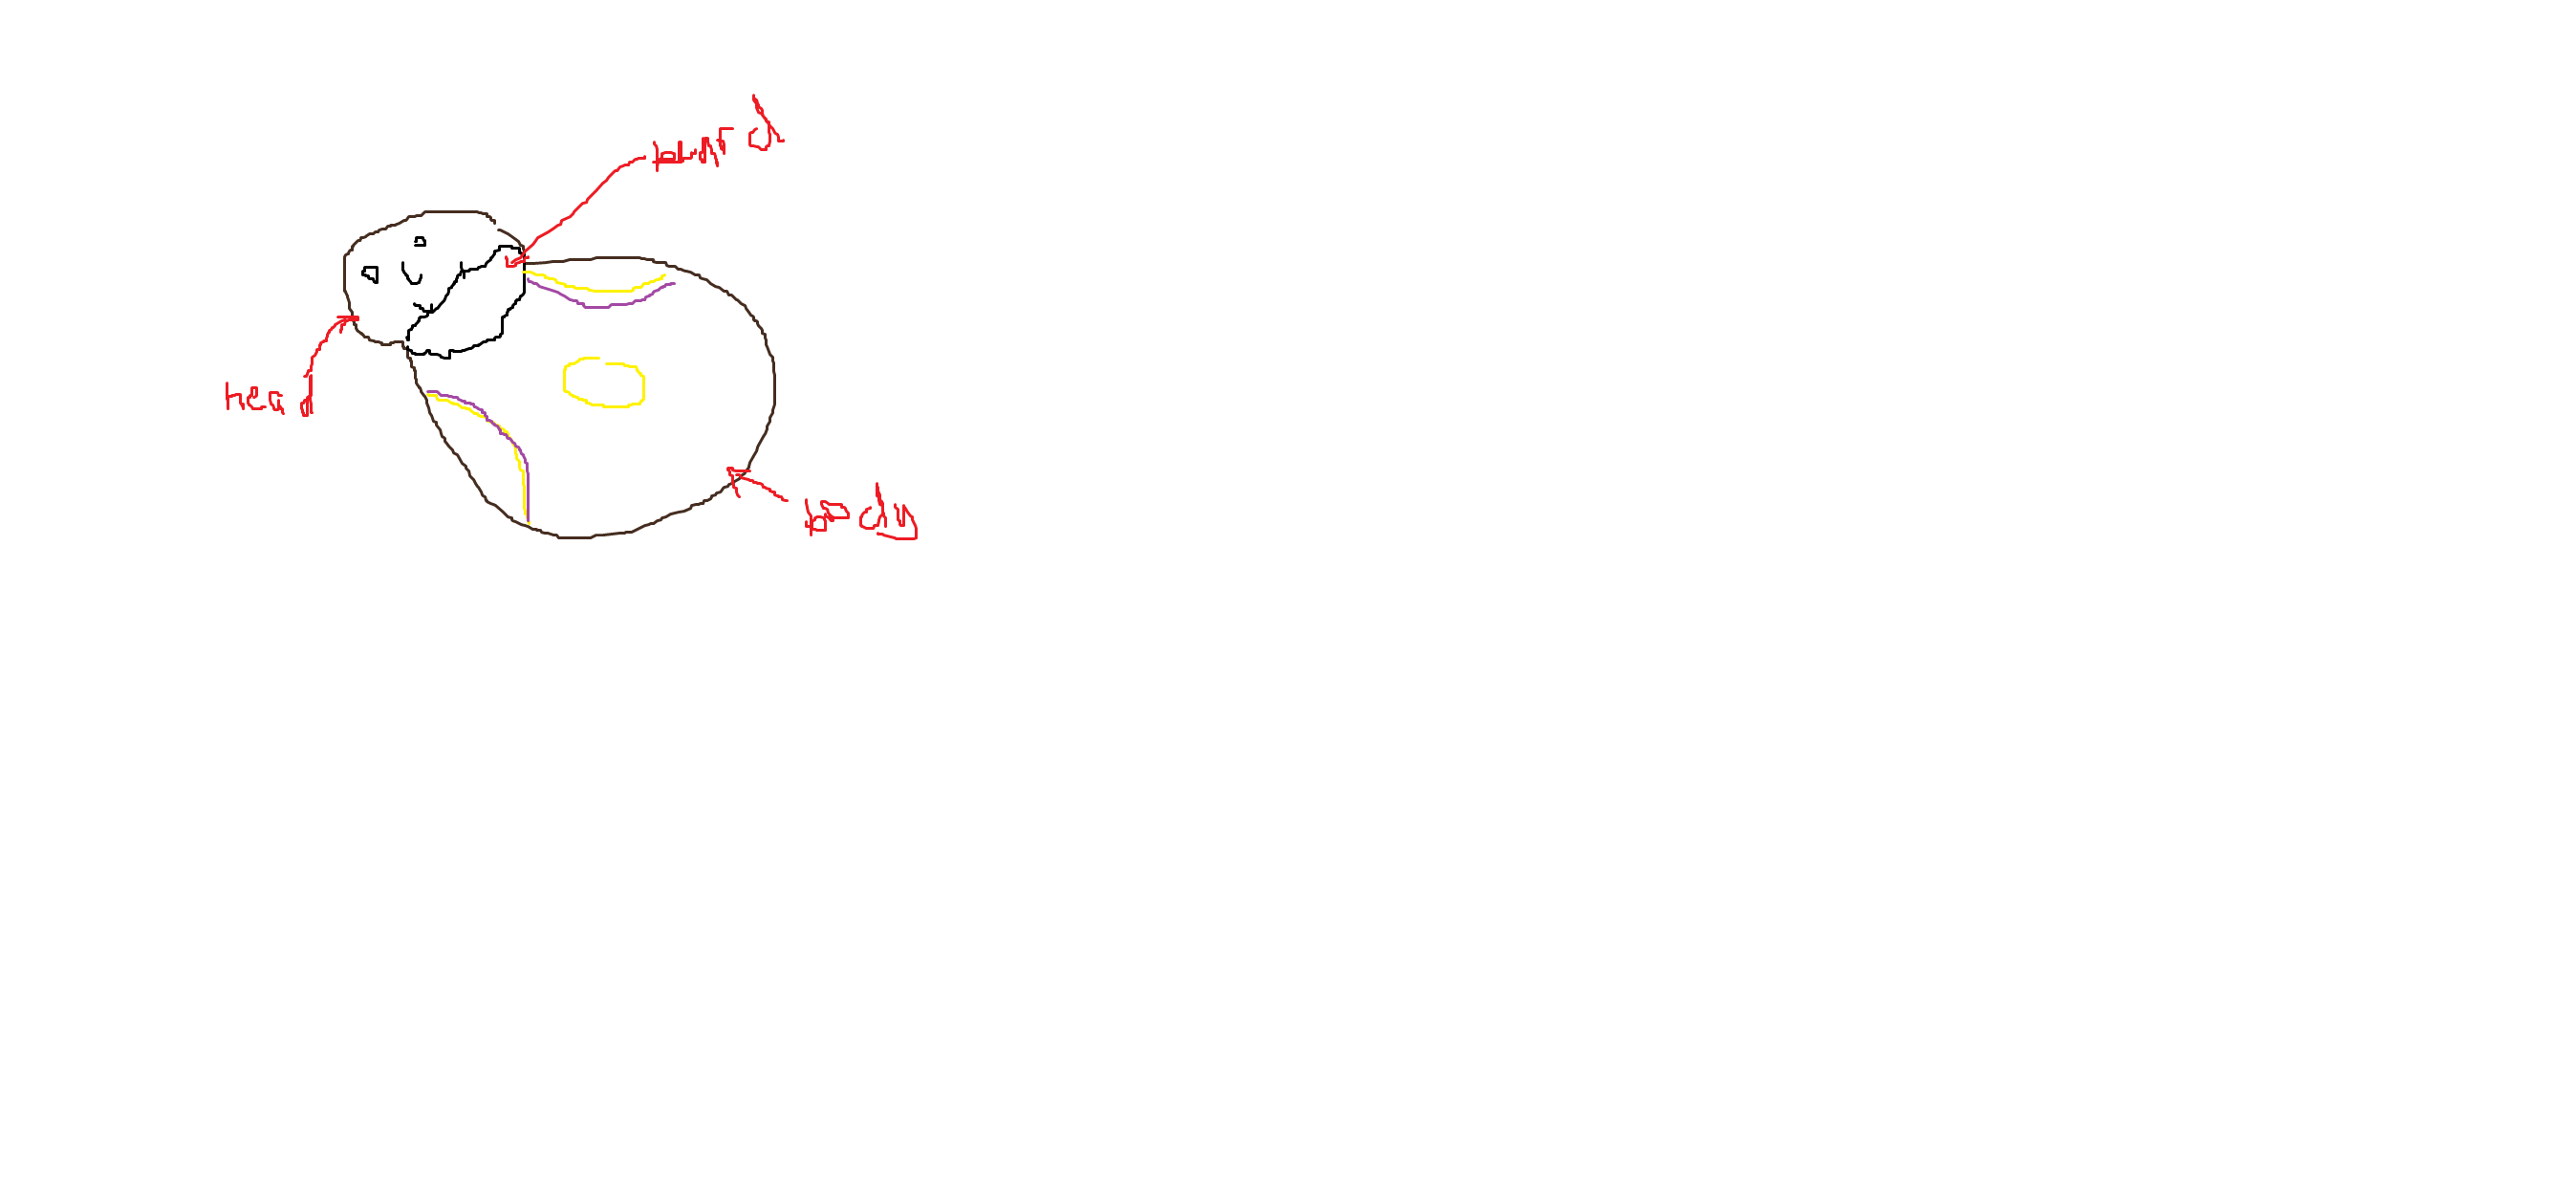 beard
head
body